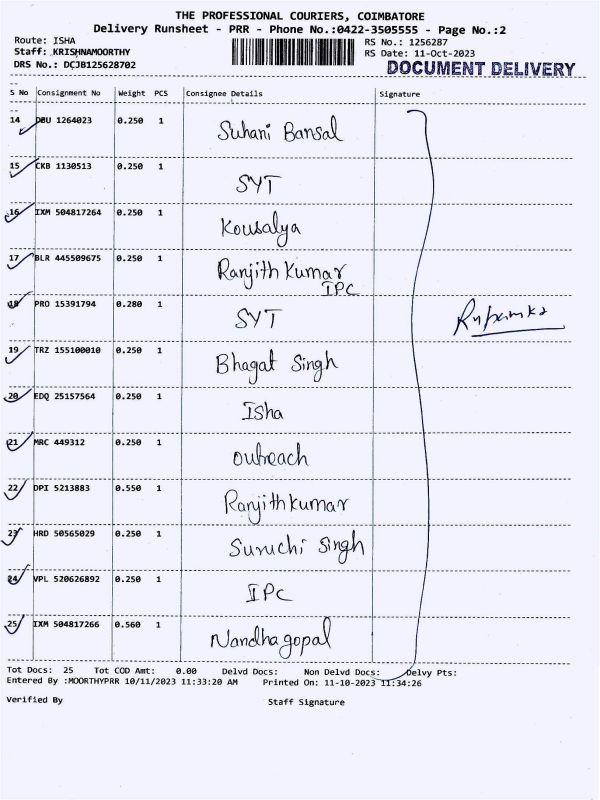 THE PROFESSIONAL COURIERS, COIMBATORE
Delivery Runsheet - PRR - Phone No.:0422-3505555 - Page No.:2
Route: ISHA
RS No.: 1256287
Staff: KRISHNAMOORTHY
RS Date: 11-Oct-2023
DRS No.: DCJB125628702
DOCUMENT DELIVERY
S No Consignment No Weight PCS Consignee Details Signature
14 DBU 1264023 0.250 1 Suhani Bansal
15 CKB 1130513 0.250 1 SYT
16 IXM 504817264 0.250 1 Kousalya
17 BLR 445509675 0.250 1 Ranjith Kumar
IPC
18 PRO 15391794 0.280 1 SYT
19 TRZ 155100010 0.250 1 Bhagat Singh
20 EDQ 25157564 0.250 1 Isha
21 MRC 449312 0.250 1 outreach
22 DPI 5213883 0.550 1 Ranjithkumar
23 HRD 50565029 0.250 1 Suruchi Singh
24 VPL 520626892 0.250 1 IPC
25 IXM 504817266 0.560 1 Nandhagopal
Tot Docs: 25 Tot COD Amt: 0.00 Delvd Docs: Non Delvd Docs: Delvy Pts:
Entered By :MOORTHYPRR 10/11/2023 11:33:20 AM Printed On: 11-10-2023 11:34:26
Verified By Staff Signature